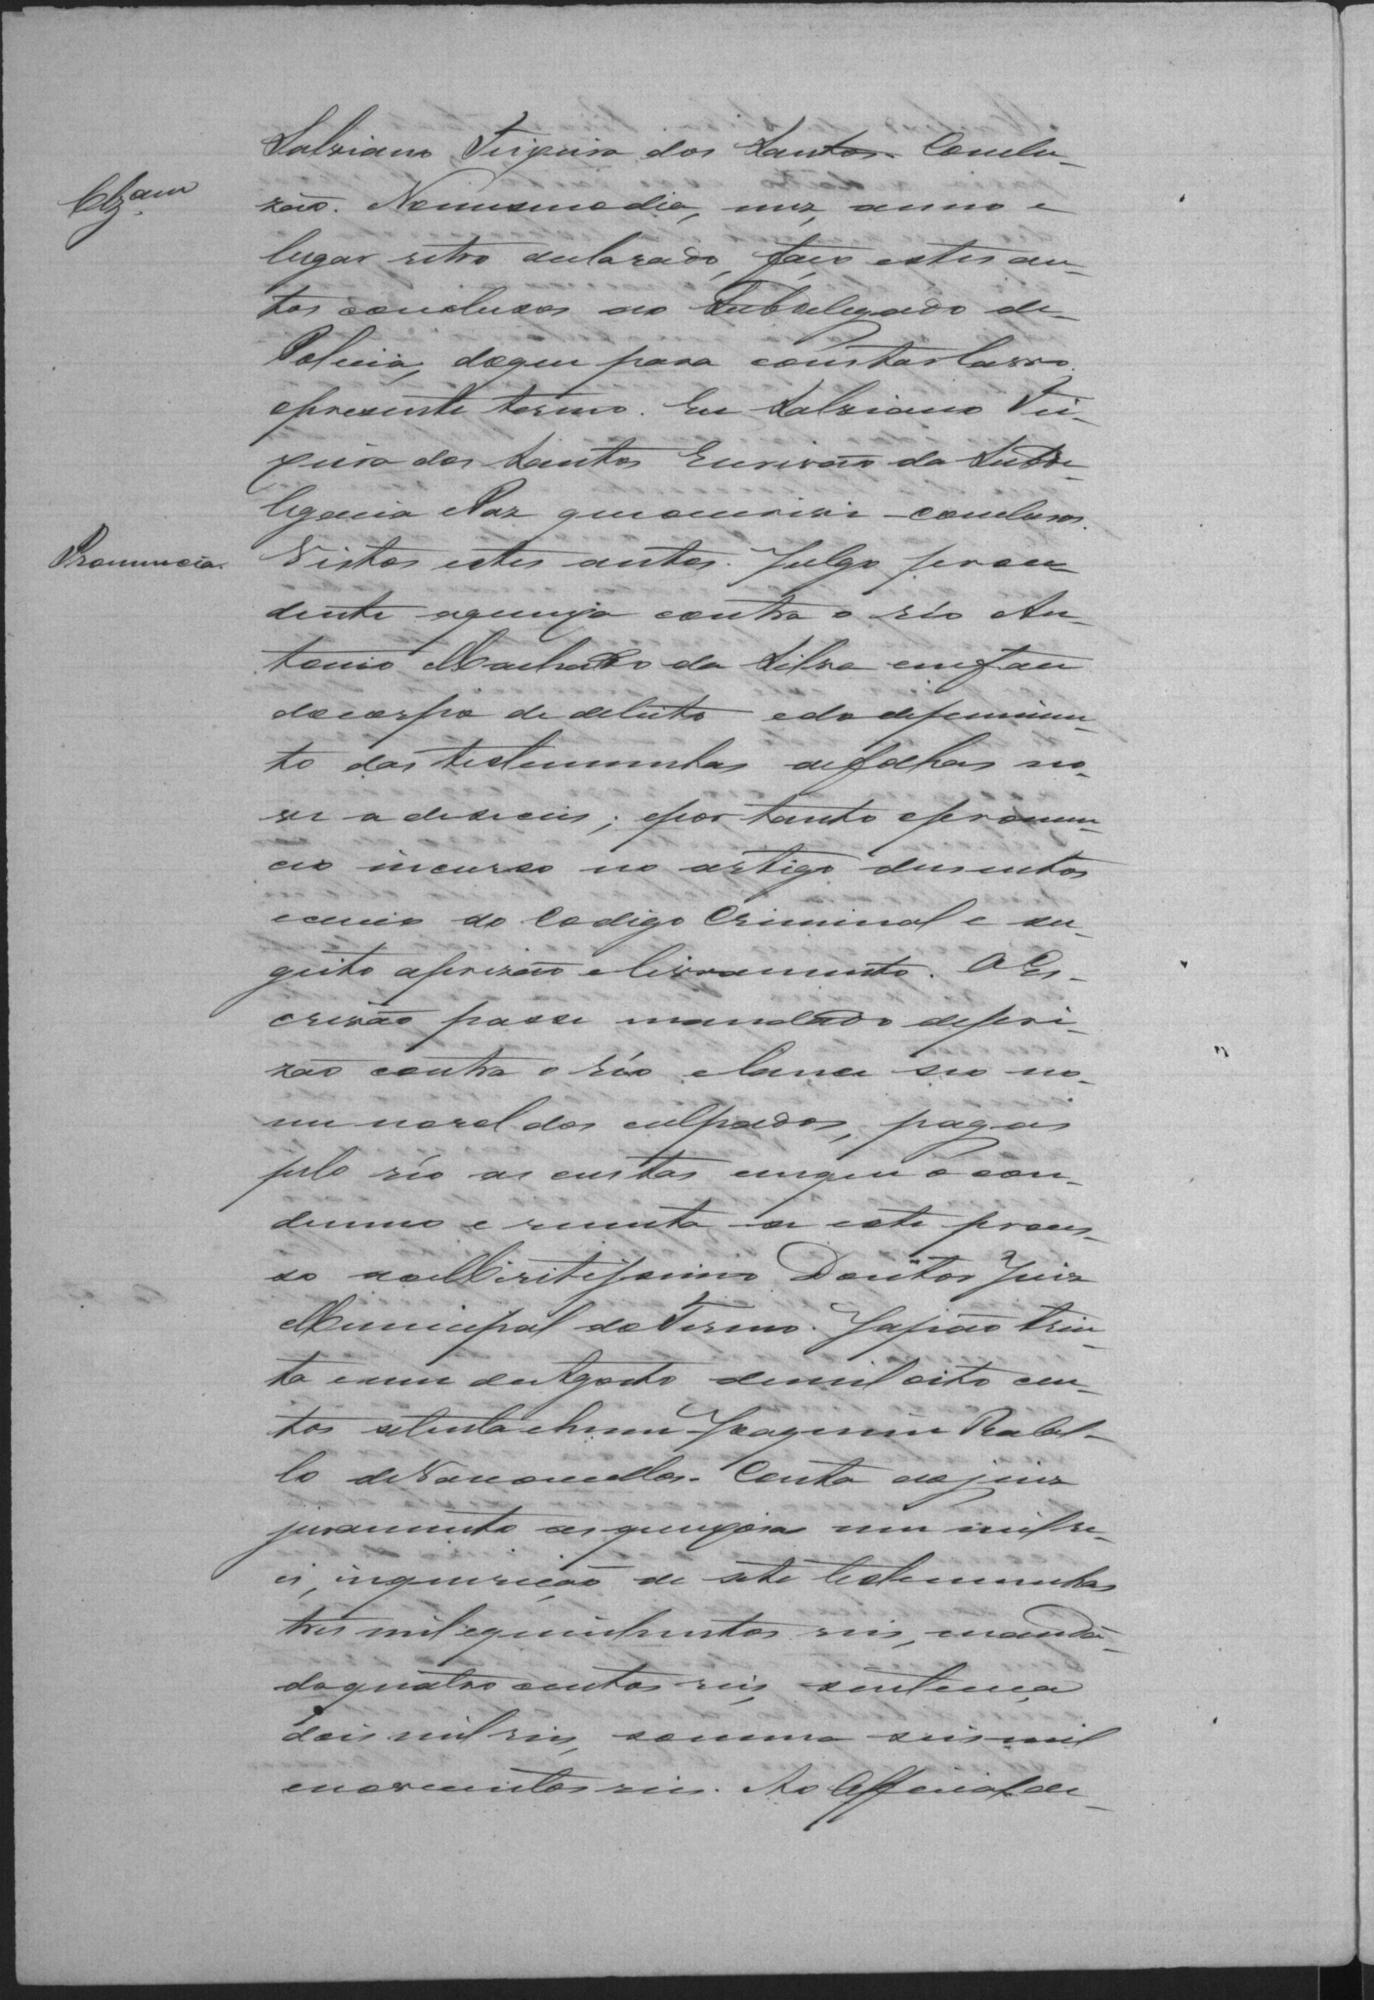 Salviano Teixeira dos Santos. Conclu-
Clzam
zão. No mesmo dia, mez, anno e
lugar retro declarado, faço estes au-
tos conclusos ao Subdelegado de
Policia, do que para constar lavro
o presente termo. Eu Salviano Tei-
xeira dos Santos Escrivão da Subde-
legacia e Paz que o escrivi - conclusos.
Pronuncia.
Vistos estes autos. Julgo proce-
dente a queixa contra o réo An-
tonio Machado da Silva em fau
do corpo de delicto e do depoimen-
to das testemunhas de folhas no-
ve a deseceis; e por tanto o pronun-
cio incurso no artigo dusentos
e cinco do Codigo Criminal e su-
geito a prizão e livramento. O Es-
crivão passe mandado de pri-
zão contra o réo e lance seo no-
me no rol dos culpados, pagas
pelo réo as custas em que o con-
demno e remeta-se este proces-
so ao Meritissimo Doutor Juiz
Municipal do Termo. Japão trin-
ta e um de Agosto de mil oito cen-
tos setenta e hum Joaquim Rabel-
lo de Vasconcellos. Conta ao juiz
juramento as queixosa um mil re-
is, inquirição de sete testemunhas
tres mil e quinhentos reis, manda-
do quatro centos reis, sentença
dois mil reis, somma seis mil
e novecentos reis. Ao Official de-